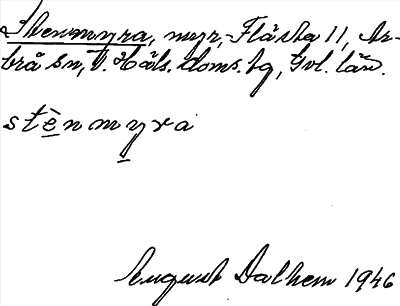 Stenmyra, myr, Flästa 11, Ar-
brå sn, V. Häls. doms. bg, Gvl. län.
stènmyra
August Dalhem 1946